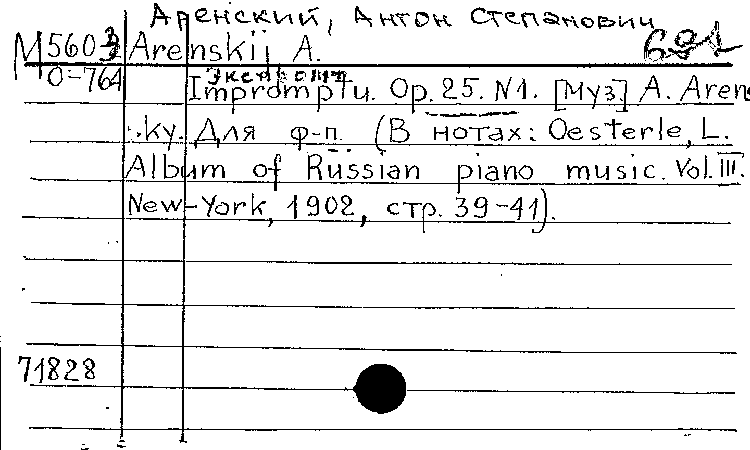 Аренский, Антон Степанович
M5603 Arenskij A.
O-764 Экспромт
Impromptu. Op. 25. N1. [Муз] A. Aren
ky. Для ф-п. (В нотах: Oesterle, L.
Album of Russian piano music. Vol. III.
New-York, 1902, стр. 39-41).
71828